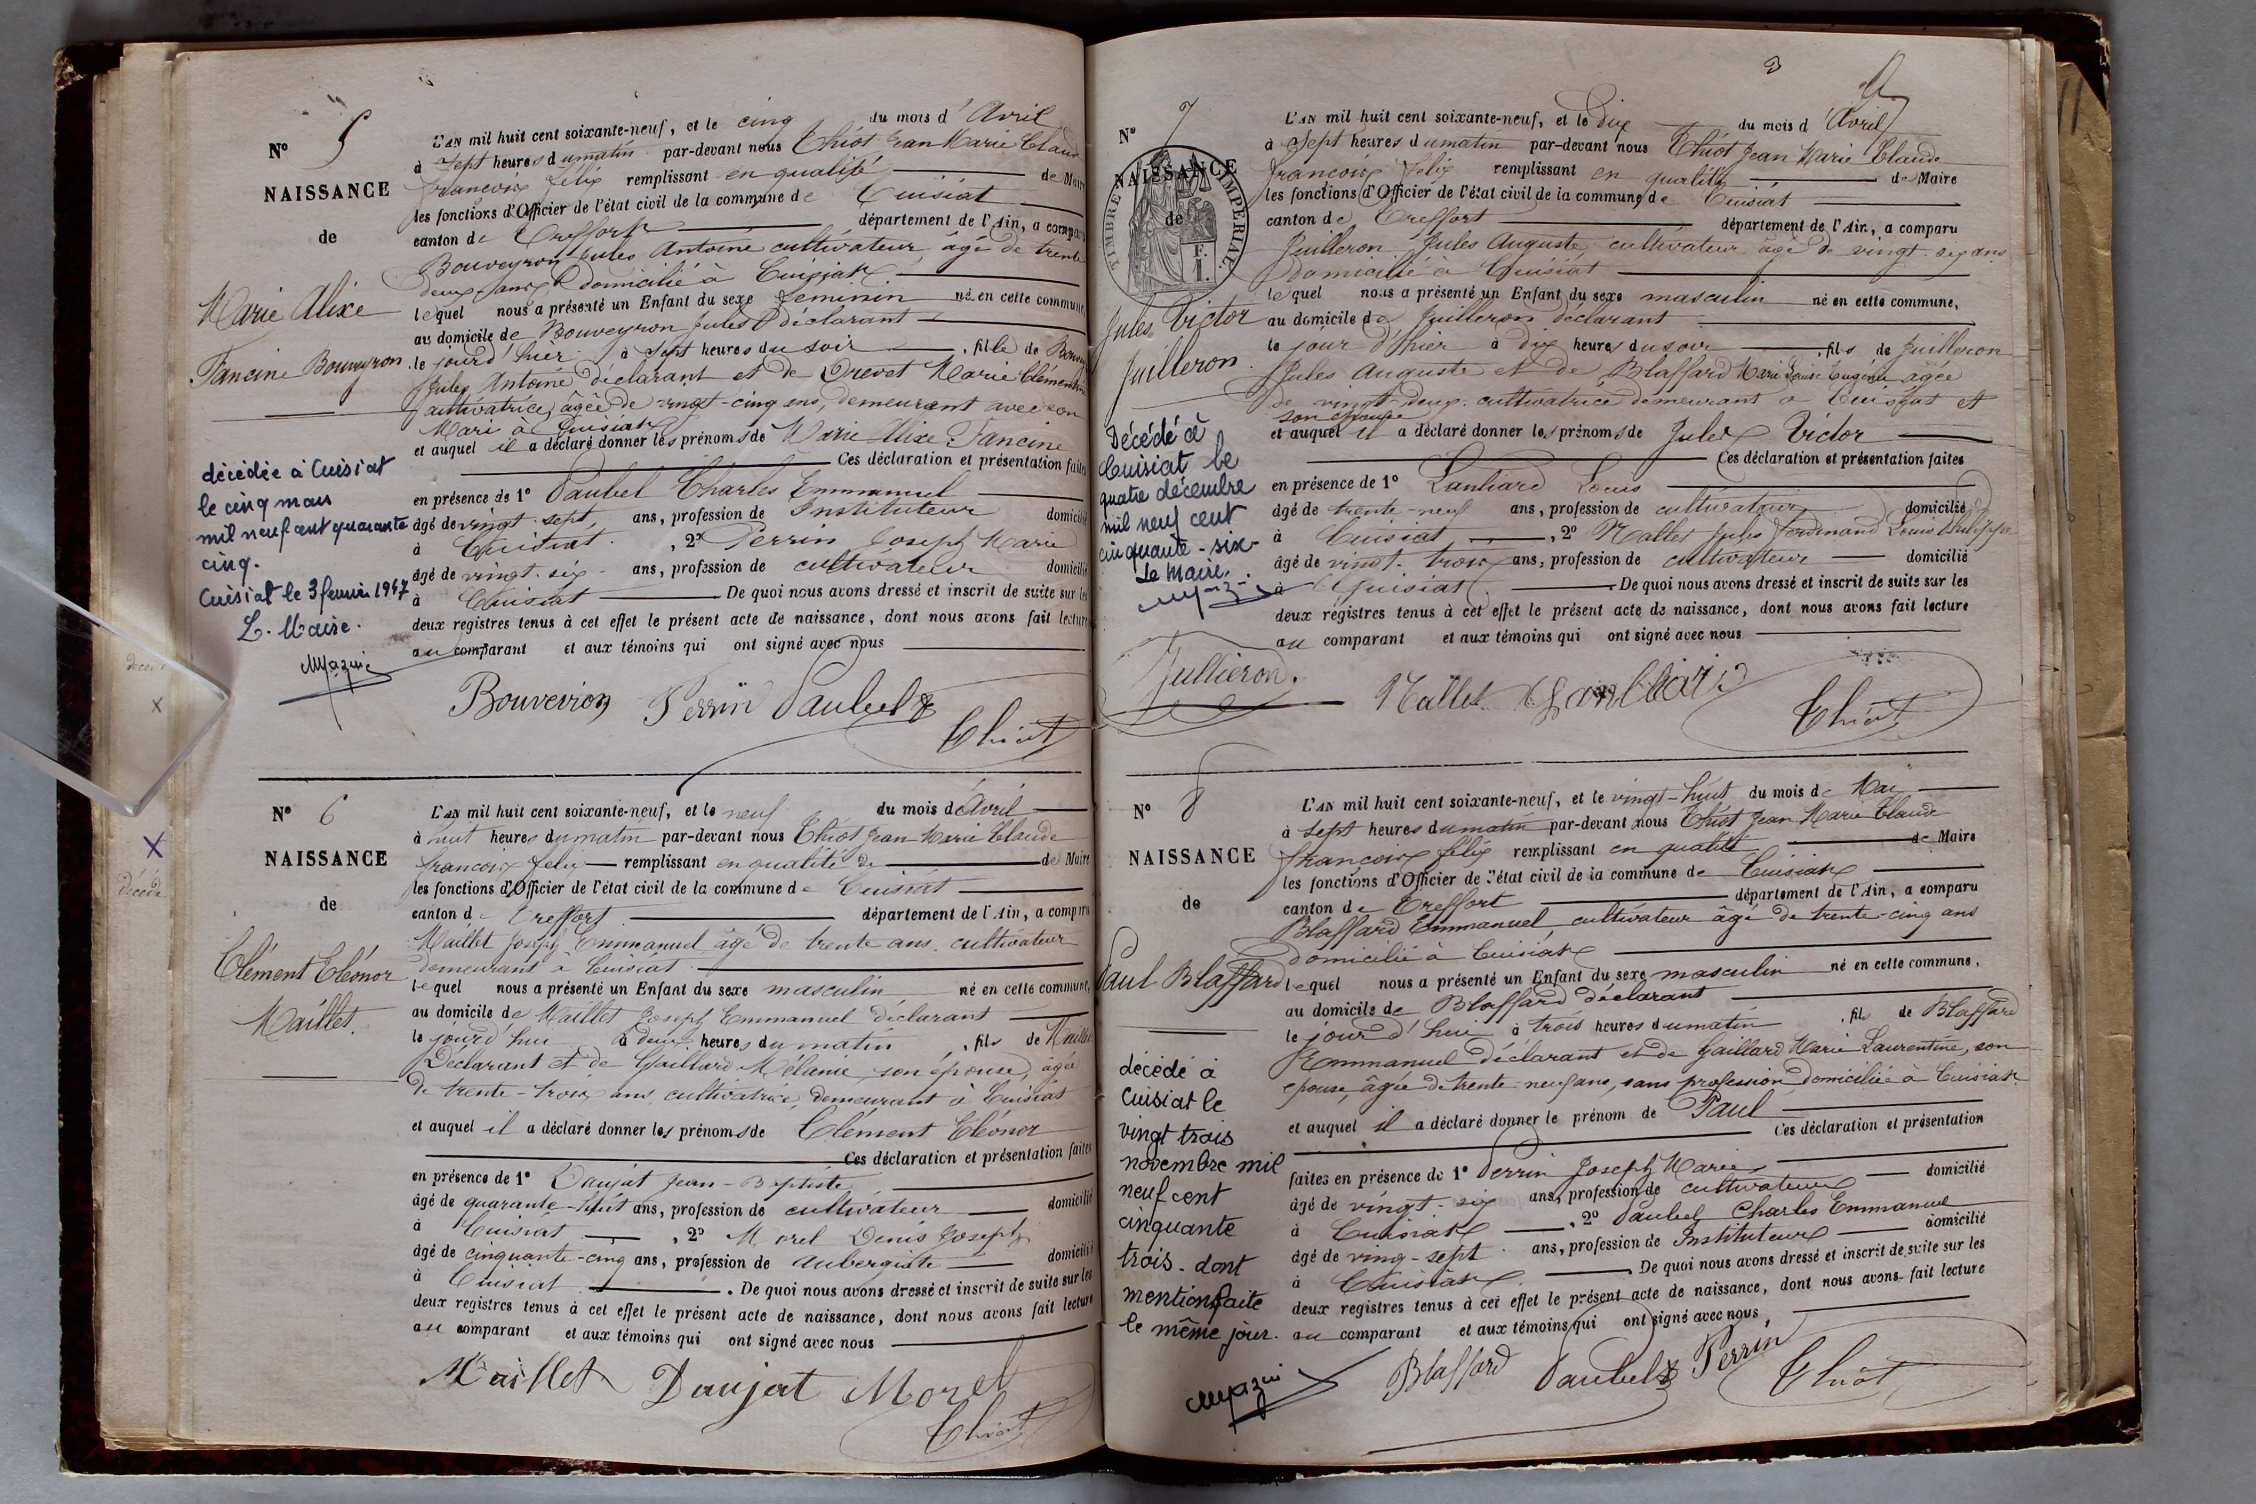 N° 5
NAISSANCE
de
Marie Alixe
Fancine Bouveyron
décédée à Cuisiat
le cinq mars
mil neuf cent quarante
cinq.
Cuisiat le 3 février 1947
Le Maire.
L'AN mil huit cent soixante-neuf, et le cinq du mois d'Avril
à Sept heures du matin par-devant nous Thiot Jean Marie Claude
françois félix remplissant en qualité de Maire
les fonctions d'Officier de l'état civil de la commune de Cuisiat
canton de Treffort département de l'Ain, a comparu
Bouveyron Jules Antoine cultivateur âgé de trente
deux ans domicilié à Cuisiat
lequel nous a présenté un Enfant du sexe feminin né en cette commune,
au domicile de Bouveyron Jules déclarant
le jour d'hier à sept heures du soir , fille de
Jules Antoine déclarant et de Drevet Marie Clémentine
cultivatrice, âgée de vingt-cinq ans, demeurant avec son
Mari à Cuisiat
et auquel il a déclaré donner les prénoms de Marie Alixe Fancine
Ces déclaration et présentation faites
en présence de 1° Paubel Charles Emmanuel
âgé de vingt-sept ans, profession de Instituteur domicilié
à Cuisiat , 2° Perrin Joseph Marie
âgé de vingt-six ans, profession de cultivateur domicilié
à Cuisiat De quoi nous avons dressé et inscrit de suite sur les
deux registres tenus à cet effet le présent acte de naissance, dont nous avons fait lecture
au comparant et aux témoins qui ont signé avec nous
Bouveyron Perrin Paubel
Thiot
N° 6
NAISSANCE
de
Clément Eléonor
Maillet.
L'AN mil huit cent soixante-neuf, et le neuf du mois d'Avril
à huit heures du matin par-devant nous Thiot Jean Marie Claude
françois felix remplissant en qualité de de Maire
les fonctions d'Officier de l'état civil de la commune de Cuisiat
canton de Treffort département de l'Ain, a comparu
Maillet Joseph Emmanuel âgé de trente ans, cultivateur
demeurant à Cuisiat
lequel nous a présenté un Enfant du sexe masculin né en cette commune,
au domicile de Maillet Joseph Emmanuel déclarant
le jour d'hui à deux heures du matin , fils de Maillet
Déclarant et de Gaillard Mélanie, son épouse, âgée
de trente-trois ans, cultivatrice, demeurant à Cuisiat
et auquel il a déclaré donner les prénoms de Clément Eléonor
Ces déclaration et présentation faites
en présence de 1° Daujat Jean-Baptiste
âgé de quarante-huit ans, profession de cultivateur domicilié
à Cuisiat , 2° Morel Denis Joseph
âgé de cinquante-cinq ans, profession de Aubergiste domicilié
à Cuisiat . De quoi nous avons dressé et inscrit de suite sur les
deux registres tenus à cet effet le présent acte de naissance, dont nous avons fait lecture
au comparant et aux témoins qui ont signé avec nous
Maillet Daujat Morel
Thiot
3
N° 7
NAISSANCE
de
TIMBRE IMPERIAL
F.
1.
Jules Victor
Juilleron.
Décédé à
Cuisiat le
quatre décembre
mil neuf cent
cinquante-six-
Le Maire.
L'AN mil huit cent soixante-neuf, et le dix du mois d'Avril
à Sept heures du matin par-devant nous Thiot Jean Marie Claude
françois felix remplissant en qualité de Maire
les fonctions d'Officier de l'état civil de la commune de Cuisiat
canton de Treffort département de l'Ain, a comparu
Juilleron Jules Auguste, cultivateur âgé de vingt-six ans
domicilié à Cuisiat
lequel nous a présenté un Enfant du sexe masculin né en cette commune,
au domicile de Juilleron déclarant
le jour d'hier à dix heures du soir , fils de Juilleron
Jules Auguste et de Blaffard Marie Louise Eugénie âgée
de vingt-deux, cultivatrice demeurant à Cuisiat et
son épouse
et auquel il a déclaré donner les prénoms de Jules Victor
Ces déclaration et présentation faites
en présence de 1° Lanliard Louis
âgé de trente-neuf ans, profession de cultivateur domicilié
à Cuisiat , 2° Mallet Jules Ferdinand Louis Philippe
âgé de vingt-trois ans, profession de cultivateur domicilié
à Cuisiat . De quoi nous avons dressé et inscrit de suite sur les
deux régistres tenus à cet effet le présent acte de naissance, dont nous avons fait lecture
au comparant et aux témoins qui ont signé avec nous
Jullieron. Mallet
Thiot
N° 8
NAISSANCE
de
Paul Blaffard
décédé à
Cuisiat le
vingt trois
novembre mil
neuf cent
cinquante
trois - dont
mention faite
le même jour.
L'AN mil huit cent soixante-neuf, et le vingt-huit du mois de Mai
à sept heures du matin par-devant nous Thiot Jean Marie Claude
françois félix remplissant en qualité de Maire
les fonctions d'Officier de l'état civil de la commune de Cuisiat
canton de Treffort département de l'Ain, a comparu
Blaffard Emmanuel, cultivateur âgé de trente-cinq ans
domicilié à Cuisiat
lequel nous a présenté un Enfant du sexe masculin né en cette commune,
au domicile de Blaffard déclarant
le jour d'hui à trois heures du matin , fils de Blaffard
Emmanuel déclarant et de Gaillard Marie Laurentine, son
épouse, âgée de trente-neuf ans, sans profession domiciliée à Cuisiat
et auquel il a déclaré donner le prénom de Paul
Ces déclaration et présentation
faites en présence de 1° Perrin Joseph Marie domicilié
âgé de vingt-six ans, profession de cultivateur
à Cuisiat , 2° Paubel Charles Emmanuel
âgé de ving-sept ans, profession de Instituteur domicilié
à Cuisiat . De quoi nous avons dressé et inscrit de suite sur les
deux registres tenus à cet effet le présent acte de naissance, dont nous avons fait lecture
au comparant et aux témoins qui ont signé avec nous,
Blaffard Paubel Perrin
Thiot